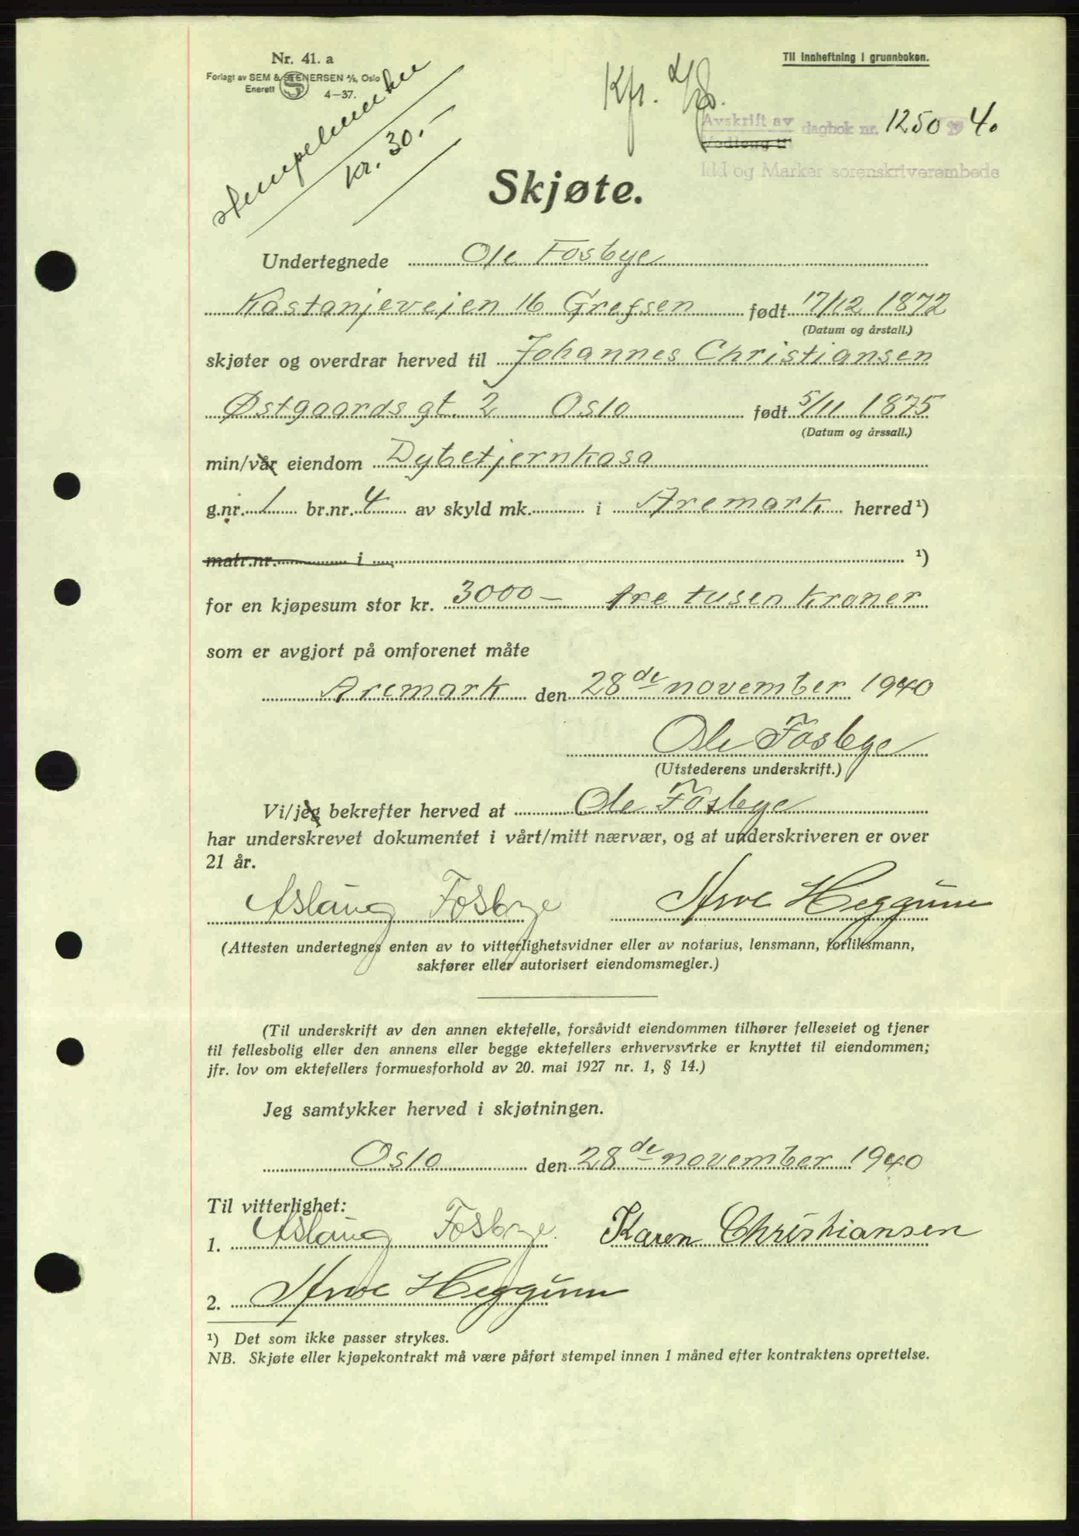 Nr. 41. a
Forlagt av SEM & STENERSEN A/S, Oslo
Enerett 4—37.
Til innheftning i grunnboken.
Stempelmerke
kr. 30.-
Kfr.
Avskrift av dagbok nr. 1250 19 40
Idd og Marker sorenskriverembede
Skjøte.
Undertegnede Ole Fosbye
Kastanjeveien 16 Grefsen født 17/12 1872
(Datum og årstall.)
skjøter og overdrar herved til Johannes Christiansen
Østgaards gt. 2 Oslo født 5/11 1875
(Datum og årssall.)
min/vår eiendom Dybetjernkasa
g.nr. 1 br.nr. 4 av skyld mk. i Aremark herred ¹)
matr.nr. i ¹)
for en kjøpesum stor kr. 3000 — tre tusen kroner
som er avgjort på omforenet måte
Aremark den 28de november 1940
Ole Fosbye
(Utstederens underskrift.)
Vi/jeg bekrefter herved at Ole Fosbye
har underskrevet dokumentet i vårt/mitt nærvær, og at underskriveren er over
21 år.
Aslaug Fosbye Arve Heggum
(Attesten undertegnes enten av to vitterlighetsvidner eller av notarius, lensmann, forliksmann,
sakfører eller autorisert eiendomsmegler.)
(Til underskrift av den annen ektefelle, forsåvidt eiendommen tilhører felleseiet og tjener
til fellesbolig eller den annens eller begge ektefellers erhvervsvirke er knyttet til eiendommen;
jfr. lov om ektefellers formuesforhold av 20. mai 1927 nr. 1, § 14.)
Jeg samtykker herved i skjøtningen.
Oslo den 28de november 1940
Til vitterlighet:
1. Aslaug Fosbye. Karen Christiansen
2. Arve Heggum
¹) Det som ikke passer strykes.
NB. Skjøte eller kjøpekontrakt må være påført stempel innen 1 måned efter kontraktens oprettelse.